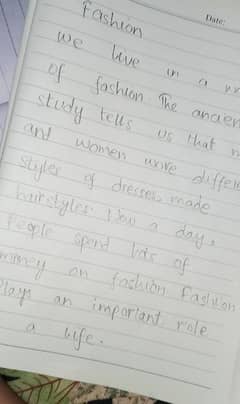 Date:
Fashion
We live in a
of fashion The
study tells us that
and women wore
styles of dresses, made
hairstyles. Now a day,
People spend lots of
money on fashion Fashion
Plays an important role
a life.